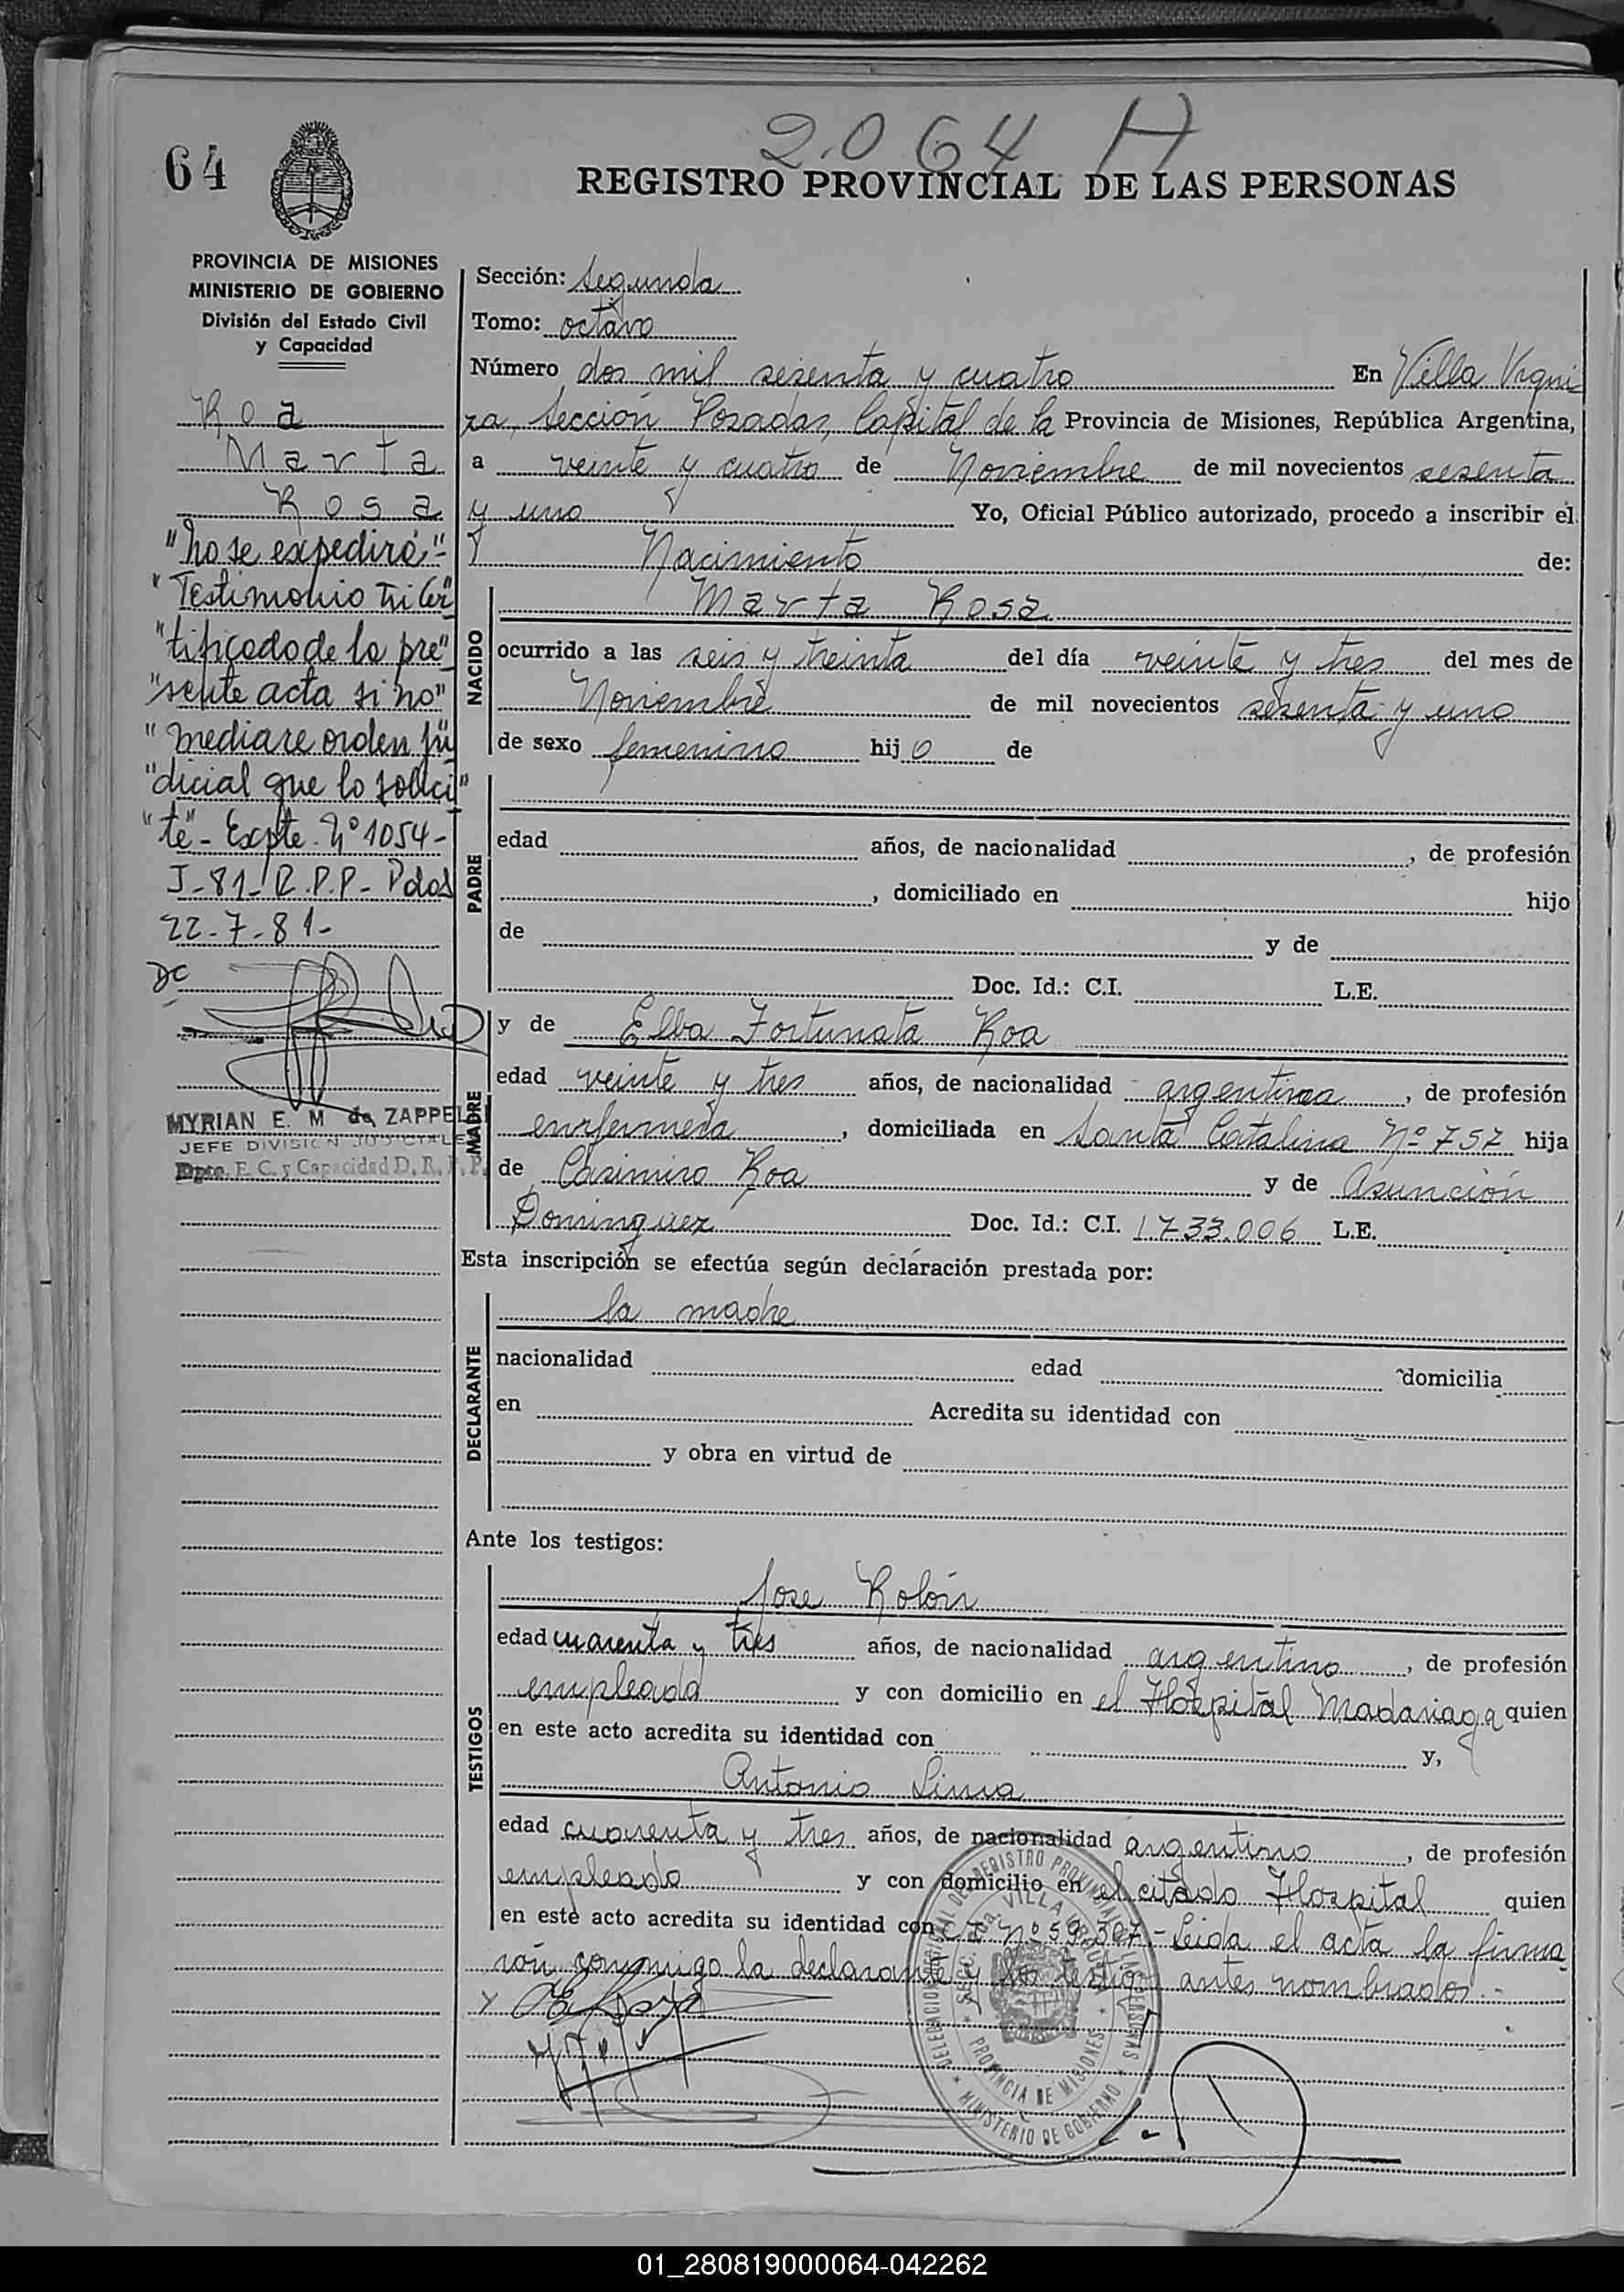 2.064 H
64
REGISTRO PROVINCIAL DE LAS PERSONAS
PROVINCIA DE MISIONES
MINISTERIO DE GOBIERNO
División del Estado Civil
y Capacidad
Roa
Marta
Rosa
"No se expedirá"
"Testimonio ni Cer"
"tificado de la pre"
"sente acta si no"
"mediare orden ju
"dicial que lo solici"
"te" - Expte. Nº 1054-
J-81-R.P.P- Pdas
22-7-81-
DC
MYRIAN E. M de ZAPPEL
JEFE DIVISION JUDICIALE
Dpto. E. C. y Capacidad D. R. P. P.
Sección: Segunda
Tomo: octavo
Número dos mil sesenta y cuatro En Villa Urqui
za, Sección Posadas, Capital de la Provincia de Misiones, República Argentina,
a veinte y cuatro de Noviembre de mil novecientos sesenta
y uno Yo, Oficial Público autorizado, procedo a inscribir el
Nacimiento de:
NACIDO
Marta Rosa
ocurrido a las seis y treinta del día veinte y tres del mes de
Noviembre de mil novecientos sesenta y uno
de sexo femenino hij o de
PADRE
edad años, de nacionalidad , de profesión
, domiciliado en hijo
de y de
Doc. Id.: C.I. L.E.
MADRE
y de Elba Fortunata Roa
edad veinte y tres años, de nacionalidad argentina, de profesión
enfermera, domiciliada en Santa Catalina Nº 757 hija
de Casimiro Roa y de Asunción
Dominguez Doc. Id.: C.I. 1.733.006 L.E.
Esta inscripción se efectúa según declaración prestada por:
DECLARANTE
la madre
nacionalidad edad domicilia
en Acredita su identidad con
y obra en virtud de
Ante los testigos:
TESTIGOS
Jose Rolón
edad cuarenta y tres años, de nacionalidad argentino, de profesión
empleado y con domicilio en el Hospital Madariaga quien
en este acto acredita su identidad con y,
Antonio Lima
edad cuarenta y tres años, de nacionalidad argentino, de profesión
empleado y con domicilio en el citado Hospital quien
en este acto acredita su identidad con C.I. Nº 59.307.- Leida el acta la firma
rón conmigo la declarante y los testigos antes nombrados.-
DELEGACION REGIONAL DEL REGISTRO PROVINCIAL DE LAS PERSONAS
SECC. 2da. VILLA URQUIZA
PROVINCIA DE MISIONES
MINISTERIO DE GOBIERNO
01_280819000064-042262